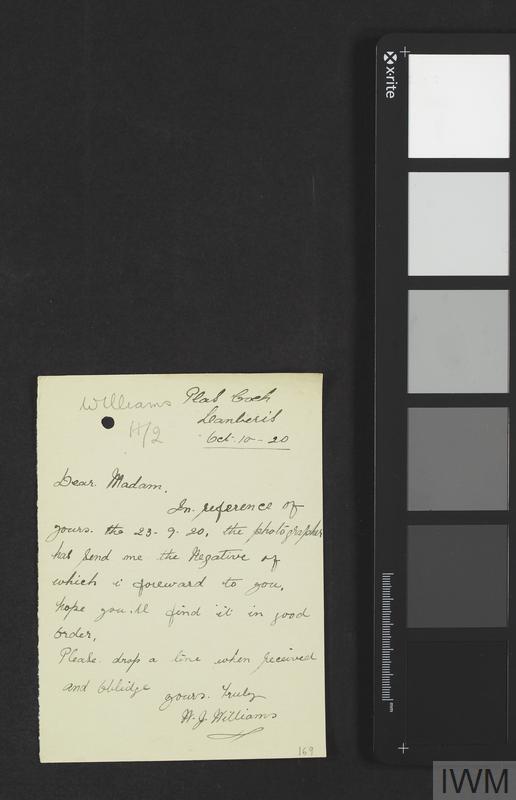 x-rite
Williams
H/2
Plas Coch
Llanberis
Oct. 10 - 20
Dear. Madam.
In. reference of
yours. the 23 - 9. 20, the photographer
has send me the Negative of
which i foreward to you,
hope you.ll find it in good
order,
Please. drop a line when received
and Obblidge
yours. truly
W. J. Williams
169
mm
IWM